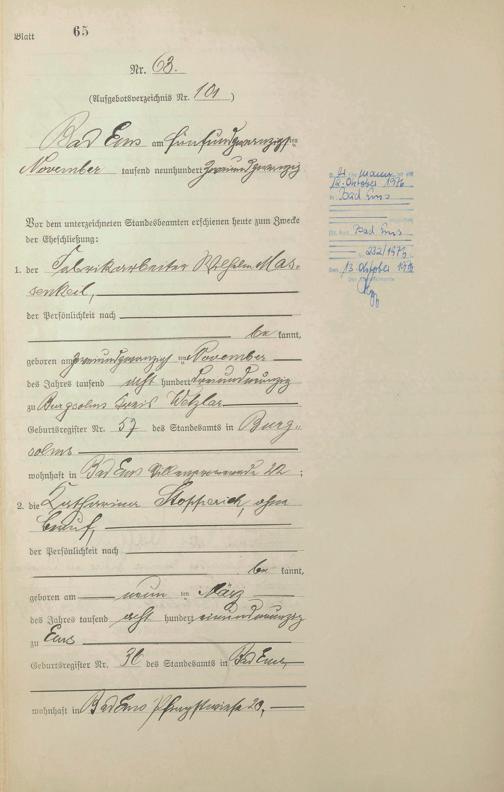 Blatt 65
Nr. 63.
(Aufgebotsverzeichnis Nr. 101)
Bad Ems am fünfundzwanzigsten
November tausend neunhundert zweiundzwanzig
Vor dem unterzeichneten Standesbeamten erschienen heute zum Zwecke
der Eheschließung:
1. der Fabrikarbeiter Wilhelm Mas-
senkeil,
der Persönlichkeit nach
be kannt,
geboren am zweiundzwanzigsten November
des Jahres tausend acht hundert
zu Burgsolms Kreis Wetzlar
Geburtsregister Nr. 57 des Standesamts in Burg-
solms
wohnhaft in Bad Ems 22;
2. die Katharina Stopperich, ohne
Beruf,
der Persönlichkeit nach
be kannt,
geboren am neunten März
des Jahres tausend acht hundert
zu Ems
Geburtsregister Nr. 36 des Standesamts in Bad Ems,
wohnhaft in Bad Ems Pfingstwiese 20,
mann
12. Oktober 1976
in Bad Ems
Bad Ems
Nr. 232/1976
13. Oktober 1976